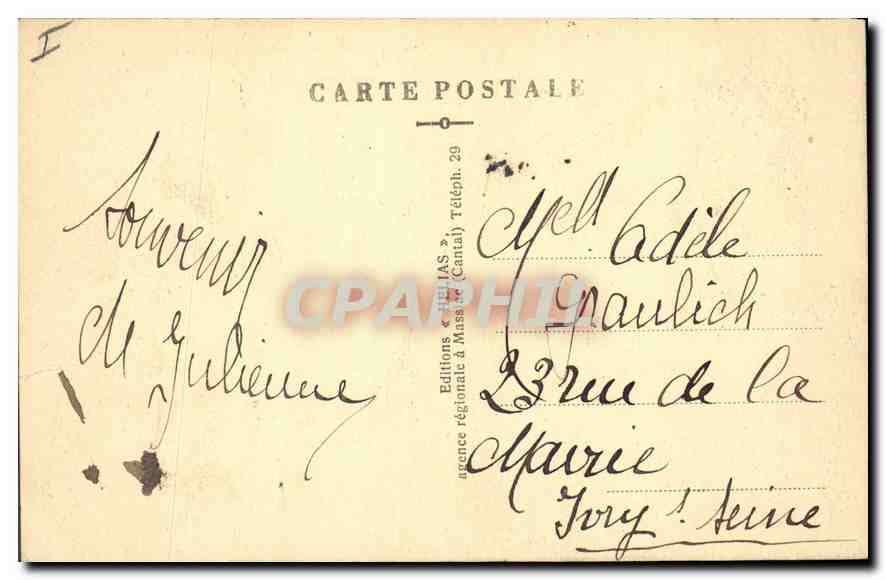 I
CARTE POSTALE
Souvenir
de Julienne
Editions « HELIAS »,
agence régionale à Massiac (Cantal) Téléph. 29
Mell Adèle
Graulich
23 rue de la
Mairie
Ivry s. Seine
CPAPHIL